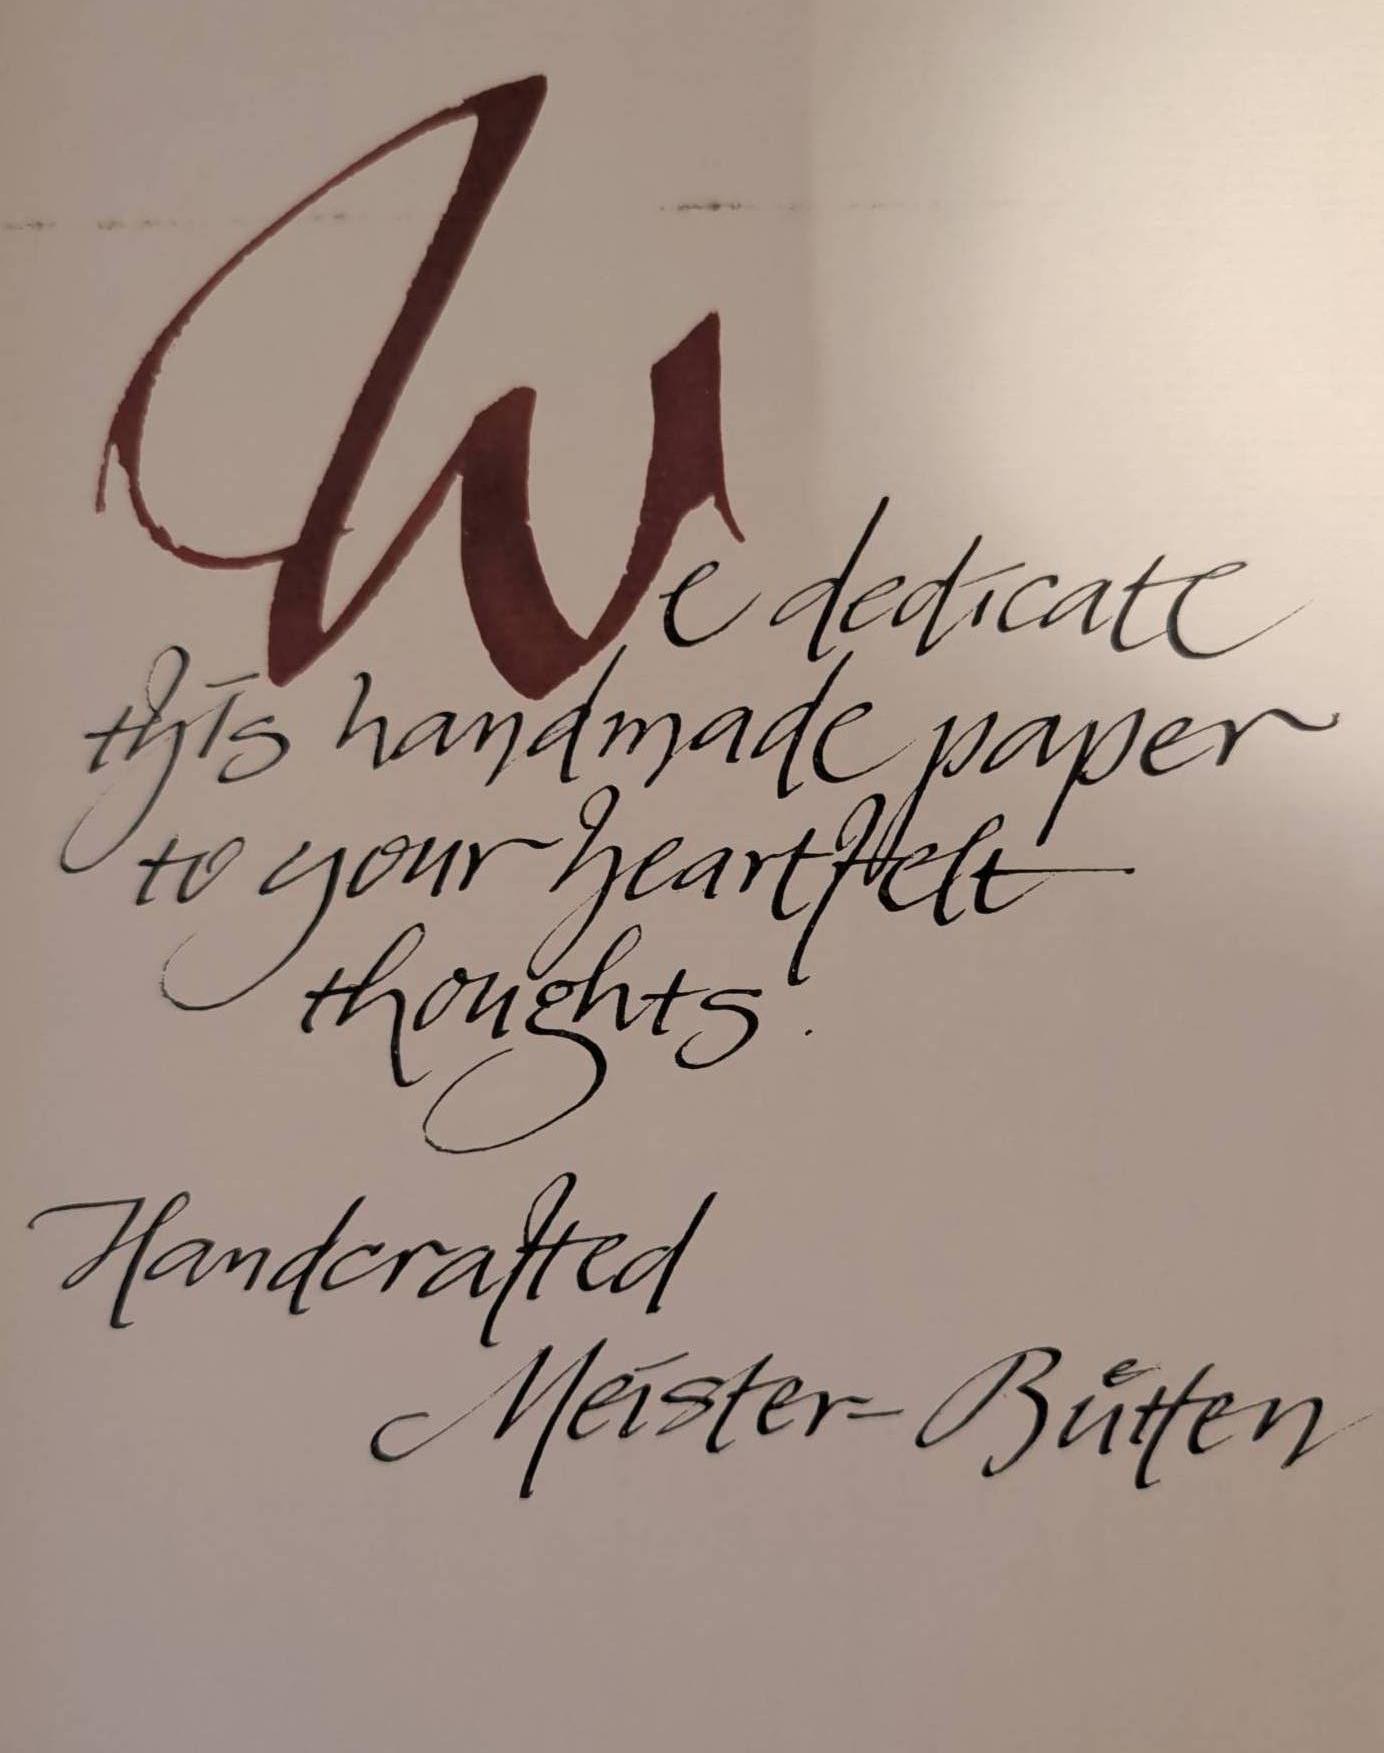 We dedicate
this handmade paper
to your heartfelt
thoughts.
Handcrafted
Meister-Bütten